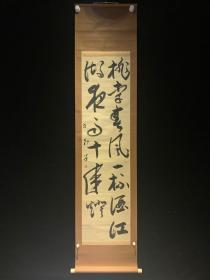 桃李春風一杯酒江
湖夜雨十年燈